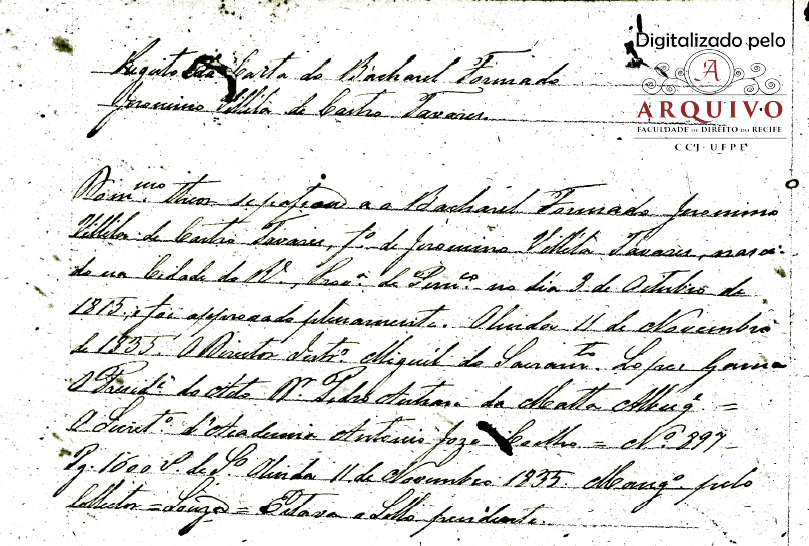 Digitalizado pelo
A
ARQUIVO
FACULDADE DE DIREITO DO RECIFE
CCJ - UFPE
Registo da Carta do Bacharel Formado
Jeronimo Villela de Castro Tavares.
theor se passou a o Bacharel Formado Jeronimo
Villela de Castro Tavares, fº de Jeronimo Villela Tavares, nasci-
do na Cidade do Rº, Provª de Pernco no dia 9 de Outubro de
1815, e foi approvado plenamente. Olinda 11 de Novembro
de 1835. O Director Interº Miguel do Sacramto Lopes Gama
O Presidº do Acto Dr Pedro Autran da Matta Albuqº =
O Secretº d'Academia Antonio José Coelho = Nº 897 -
Pg. 1600 rs de Sº Olinda 11 de Novembro 1835. pelo
Collector = Souza = Estava o Sello pendente.